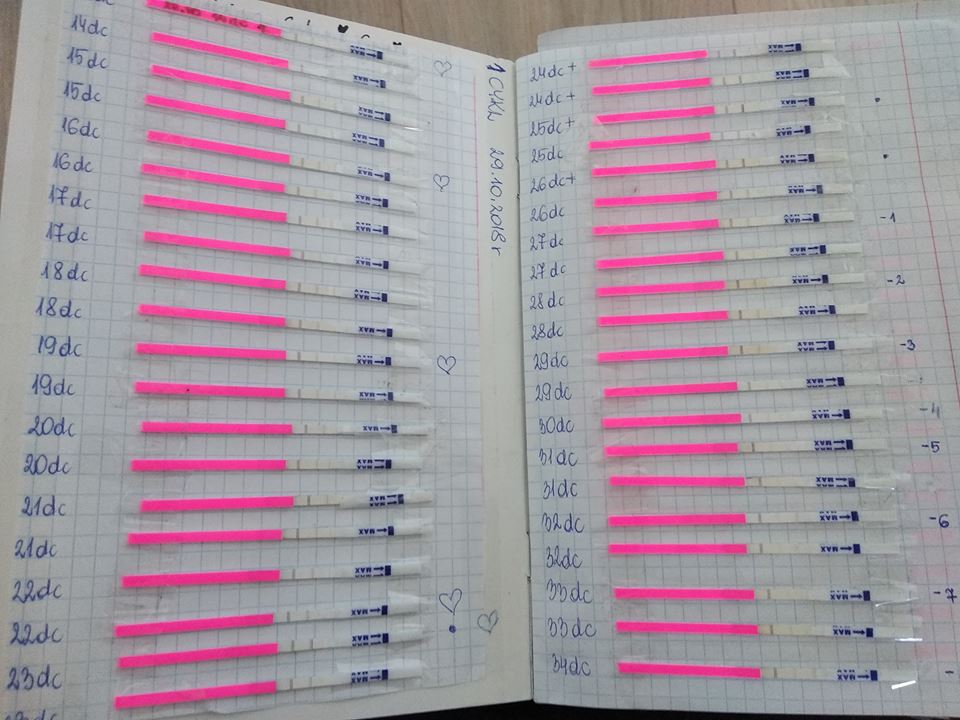 14dc
15dc
15dc
16dc
16dc
17dc
17dc
18dc
18dc
19dc
19dc
20dc
20dc
21dc
21dc
22dc
22dc
23dc
1 CYKL 29.10.2018r
24dc+
24dc+
25dc+
25dc
26dc+
26dc
27dc
27dc
28dc
28dc
29dc
29dc
30dc
31dc
31dc
32dc
32dc
33dc
33dc
34dc
-1
-2
-3
-4
-5
-6
-7
MAX